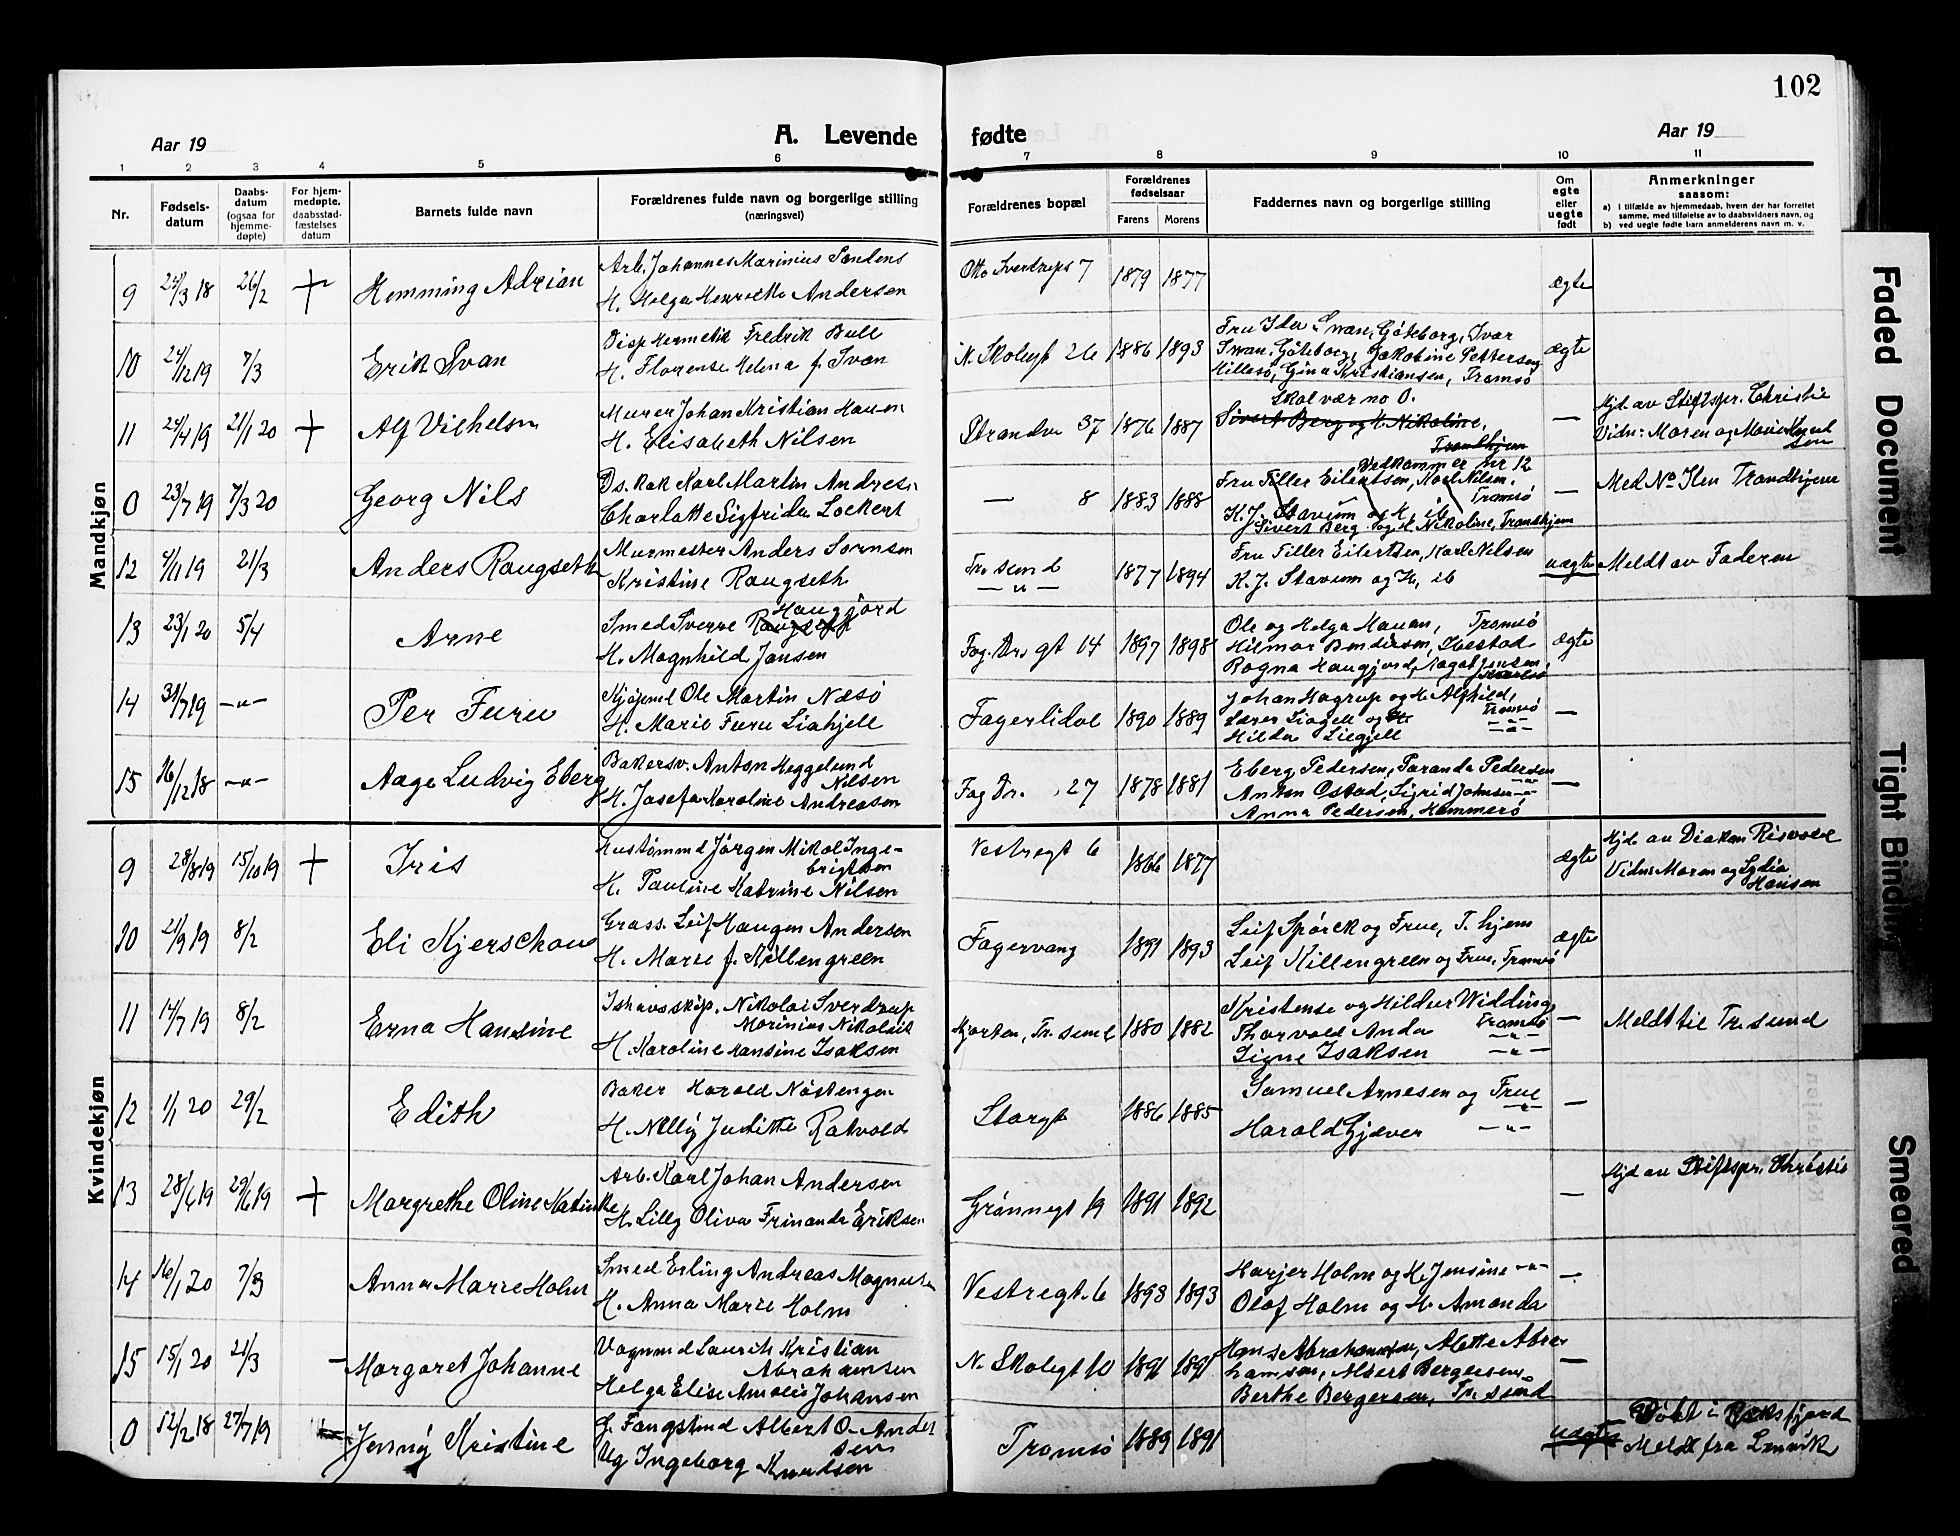 102
Aar 19
A. Levende fødte
Aar 19
1 2 3 4 5 6 7 8 9 10 11
Nr.
Fødsels-
datum
Daabs-
datum
(ogsaa for
hjemme-
døpte)
For hjem-
medøpte,
daabsstad-
fæstelses
datum
Barnets fulde navn
Forældrenes fulde navn og borgerlige stilling
(næringsvei)
Forældrenes bopæl
Forældrenes
fødselsaar
Farens Morens
Faddernes navn og borgerlige stilling
Om
egte
eller
uegte
født
Anmerkninger
saasom:
a) i tilfælde av hjemmedaab, hvem der har forrettet
samme, med tilføielse av to daabsvidners navn, og
b) ved uegte fødte barn anmelderens navn m. v.
Mandkjøn
9 24/3 18 26/2 + Hemming Adrian
Arb. Johannes Marinius Sandens
H. Helga Henrette Andersen
Otto Sverdrups 7 1879 1877 ægte
10 24/12 19 7/3 Erik Svan
Disp Hermetik Fredrik Bull
H. Florense Helena f. Svan
N. Skolegt 26 1886 1893
Fru Ida Swan, Göteborg, Ivar
Swan, Göteborg, Jakobine Pettersen
Hillesö, Gina Kristiansen, Tromsö
ægte
11 24/4 19 21/1 20 + Alf Vilhelm
Murer Johan Kristian Hansen
H. Elisabeth Nilsen
Strandve 37 1876 1887
Skal vær no 0.
Sivert Berg og H. Nikoline,
Trondhjem
—
Hjd. av Stiftspr. Christie
Vidn: Moren og Marie
0 23/7 19 7/3 20 Georg Nils
Karl Martin Andres
Charlotte Sigfrida Lockert
— 8 1883 1888
Vedkommer nr 12
Fru Tiller Eilertsen, Karl Nilsen,
Tromsö
K. J. Stavum og H. ib
Sivert Berg og H. Nikoline, Trondhjem
—
Med No Ilen Trondhjem
12 4/11 19 21/3 Anders Raugseth
Murmester Anders Sörnsen
Kristine Raugseth
Tr. sund
— " — 1877 1894
Fru Tiller Eilertsen, Karl Nilsen
K. J. Stavum og H, ib
uægte Meldt av Faderen
13 23/1 20 5/4 Arne
Haugjord
Smed Sverre Raugseth
H. Magnhild Jansen
Fog. Dr. gt 14 1897 1898
Ole og Helga Hauan, Tromsö
Hilmar Bendiksen, Ibestad
Ragna Haugjord, Aagot Jensen,
Tromsö
ægte
14 31/7 19 — " — Per Furu
Kjöpmd Ole Martin Næsö
H. Marie Furu Liahjell
Fagerlidal 1890 1889
Johan Hagrup og H. Alfhild,
Tromsö
Lærer Liagjell og H.
Hilda Liegjell — " —
—
15 16/12 18 — " — Aage Ludvig Eberg
Bakersv. Anton Heggelund
Nilsen
H. Josefa Karoline Andreasen
Fog Dr. 27 1878 1881
Eberg Pedersen, Taranda Pedersen
Anton Ostad, Sigrid Johnsen — " —
Anna Pedersen, Hammerö
—
Kvindekjøn
9 28/8 19 15/10 19 + Iris
Jörgen Mikal Inge-
brigtsen
H. Pauline Katrine Nilsen
Vestregt 6 1866 1877 ægte
Hjd. av Diakon Risvold
Vidn: Moren og Lydia
Hansen
10 21/9 19 8/2 Eli Kjerschow
Gross. Leif Haugen Andersen
H. Marie f. Killengreen
Fagervang 1891 1893
Leif Spörck og Frue, T. hjem
Leif Killengreen og Frue, Tromsö
ægte
11 14/7 19 8/2 Erna Hansine
Ishavsskip. Nikolai Sverdrup
Marinius Nikolais
H. Karoline Hansine Isaksen
Hjorten, Tr. sund 1880 1882
Kristense og Hildur Widding,
Tromsö
Thorvald Anda — " —
Signe Isaksen — " —
— Meldt til Tr. sund
12 1/1 20 29/2 Edith
Baker Harald Nöstengen
H. Nelly Judithe Rakvold
Storgt 1886 1885
Samuel Arnesen og Frue
— " —
Harald Gjæver — " —
—
13 28/6 19 29/6 19 + Margrethe Oline Katinka
Arb. Karl Johan Andersen
H. Lilly Oliva Frinanda Eriksen
Grönnegt 19 1891 1892 —
Hjd av Stiftspr. Christie
14 16/1 20 7/3 Anna Marie Holm
Smed Erling Andreas Magnussen
H. Anna Marie Holm
Vestregt. 6 1893 1893
Harjer Holm og H. Jensine — " —
Olaf Holm og H. Amanda
—
15 15/1 20 21/3 — Margaret Johanne
Vognmd Laurits Kristian
Abrahamsen
Helga Elise Amalie Johansen
N. Skolegt 10 1891 1891
Hans Abrahamsen, Alette Abra
hamsen, Albert Bergersen,
Berthe Bergersen, Tr. sund
—
0 12/2 18 27/7 19 Jenny Kristine
G. Fangstmd Albert O. Ander
sen
Ug Ingeborg Knudsen
Tromsö 1889 1891
uægte
Döbt i
Meldt fra Lenvik
Faded Document
Tight Binding
Smeared